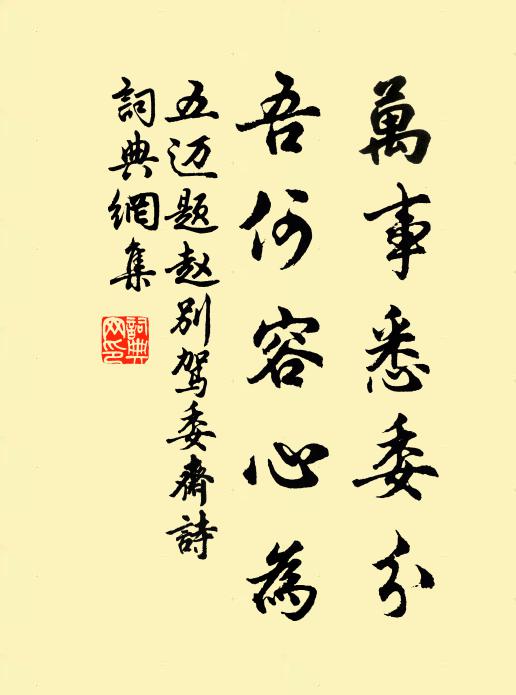 萬事悉委分
吾何容心為
五迈題赵別駕委齋詩
詞典網集
詞典網印